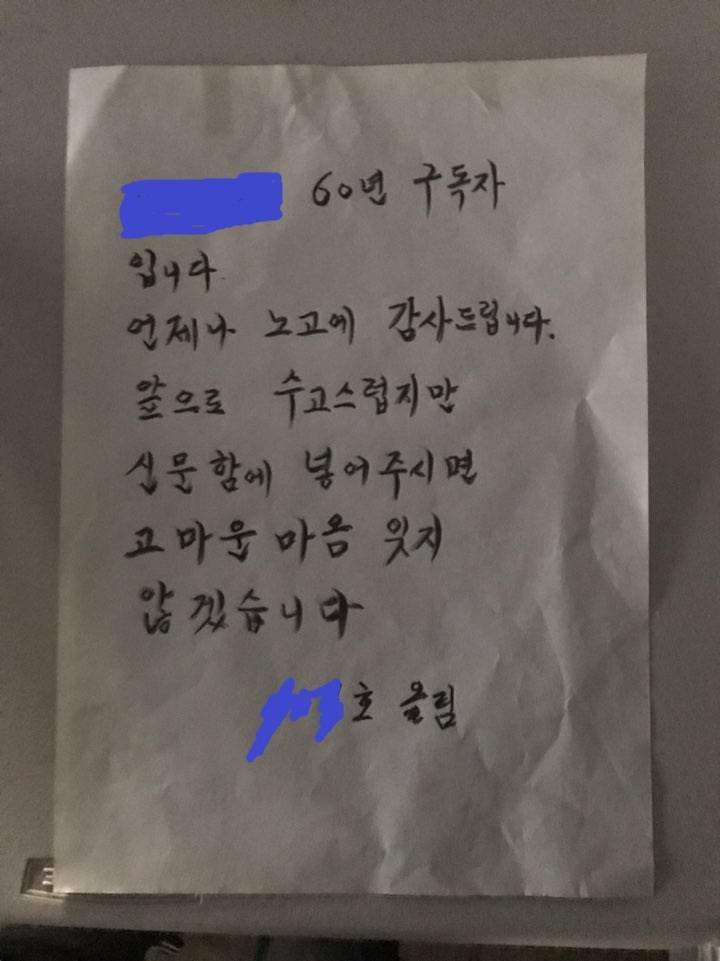 60년 구독자
입니다.
언제나 노고에 감사드립니다.
앞으로 수고스럽지만
신문함에 넣어주시면
고마운 마음 잊지
않겠습니다
호 올림